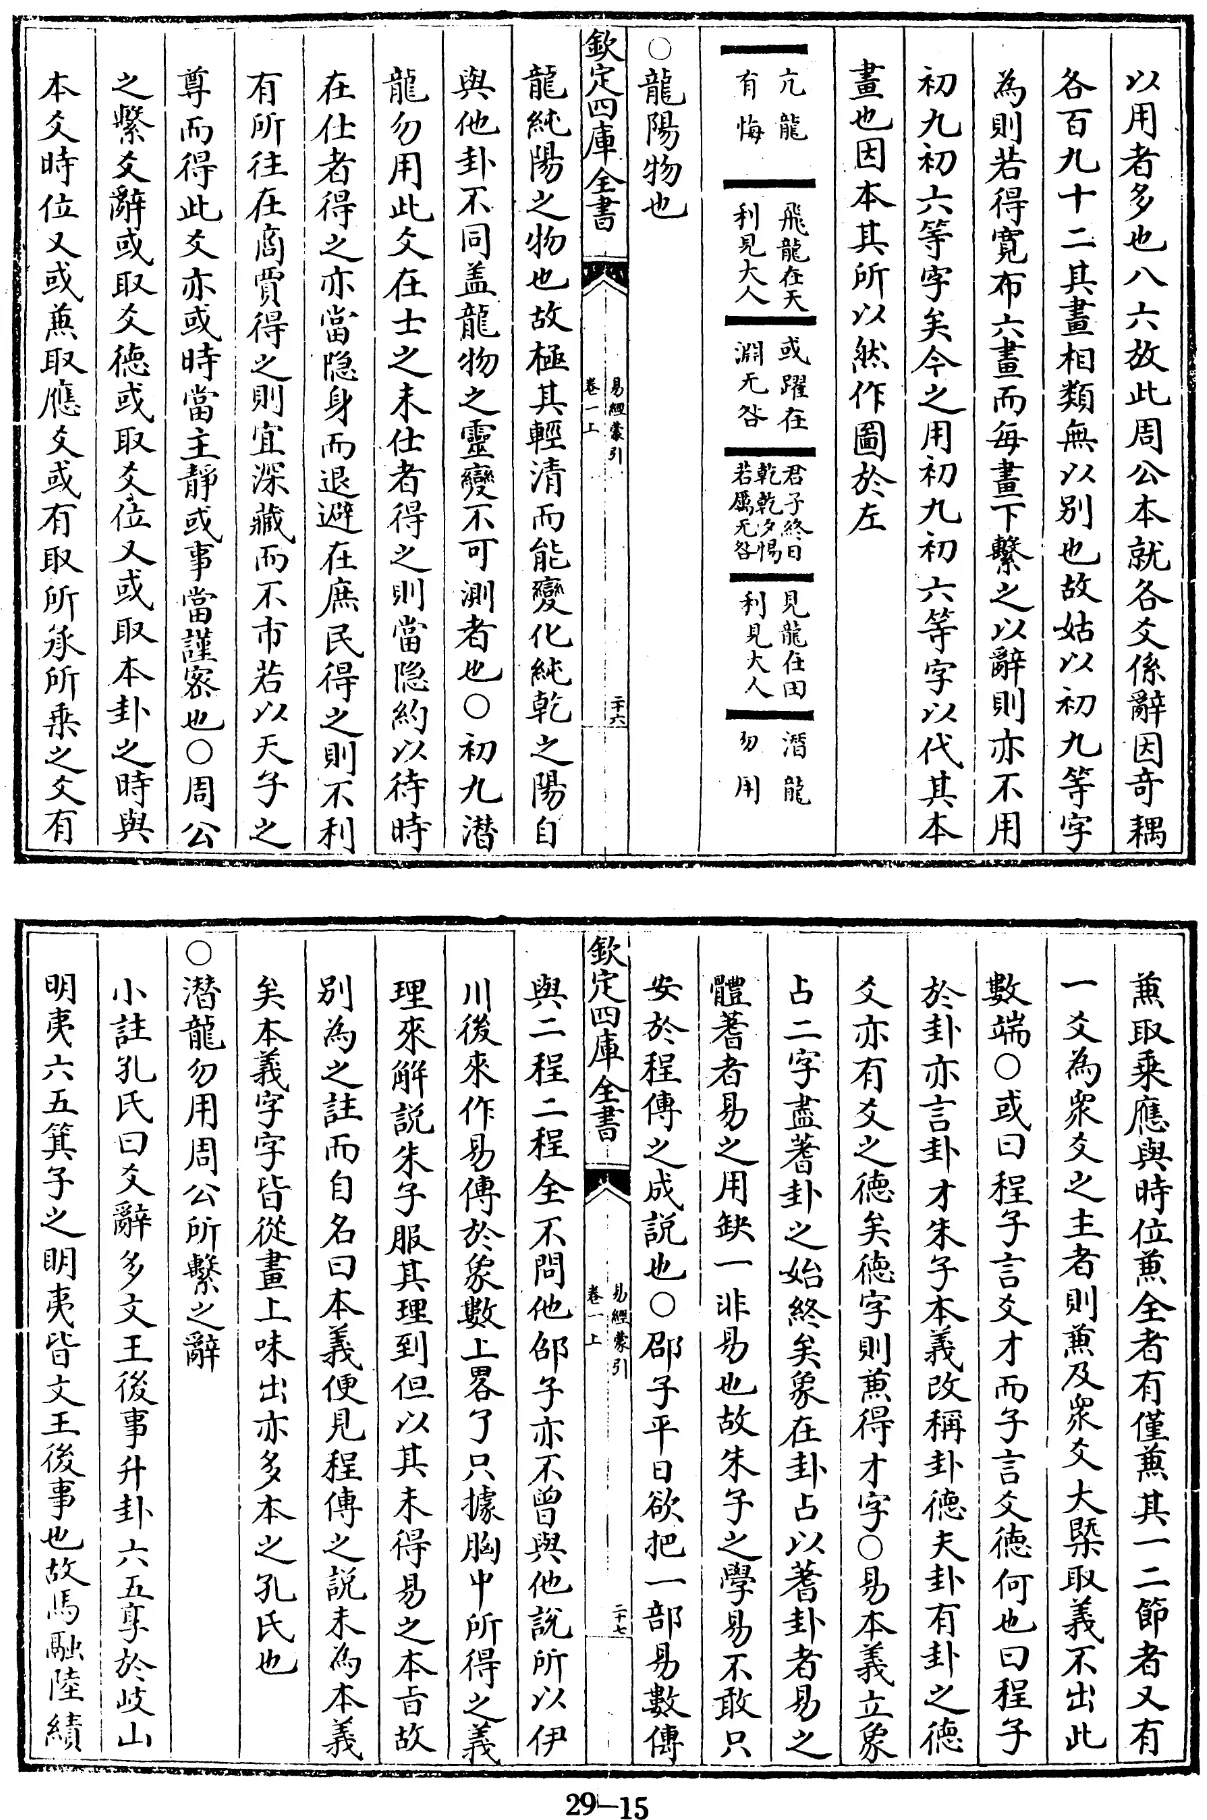 以用者多也八六放此周公本就各爻係辭因奇耦
各百九十二其畫相類無以別也故姑以初九等字
為則若得寬布六畫而每畫下繫之以辭則亦不用
初九初六等字矣今之用初九初六等字以代其本
畫也因本其所以然作圖於左
亢龍
有悔
飛龍在天
利見大人
或躍在
淵无咎
君子終日
乾乾夕惕
若厲无咎
見龍在田
利見大人
潛龍
勿用
○龍陽物也
欽定四庫全書
易經蒙引
卷一上
二十六
龍純陽之物也故極其輕清而能變化純乾之陽自
與他卦不同盖龍物之靈變不可測者也○初九潜
龍勿用此爻在士之未仕者得之則當隐約以待時
在仕者得之亦當隐身而退避在庶民得之則不利
有所往在商賈得之則宜深藏而不市若以天子之
尊而得此爻亦或時當主靜或事當謹宻也○周公
之繫爻辭或取爻德或取爻位又或取本卦之時與
本爻時位又或兼取應爻或有取所承所乘之爻有
兼取乗應與時位兼全者有僅兼其一二節者又有
一爻為衆爻之主者則兼及衆爻大槩取義不出此
數端○或曰程子言爻才而子言爻德何也曰程子
於卦亦言卦才朱子本義改稱卦德夫卦有卦之德
爻亦有爻之德矣德字則兼得才字○易本義立象
占二字盡蓍卦之始終矣象在卦占以蓍卦者易之
體蓍者易之用缺一非易也故朱子之學易不敢只
安於程傳之成説也○邵子平日欲把一部易數傳
欽定四庫全書
易經蒙引
卷一上
二十七
與二程二程全不問他邵子亦不曾與他說所以伊
川後來作易傳於象數上畧了只據胸中所得之義
理來解説朱子服其理到但以其未得易之本㫖故
別為之註而自名曰本義便見程傳之説未為本義
矣本義字字皆從畫上味出亦多本之孔氏也
○潜龍勿用周公所繫之辭
小註孔氏曰爻辭多文王後事升卦六五享於岐山
明夷六五箕子之明夷皆文王後事也故馬融陸績
29-15